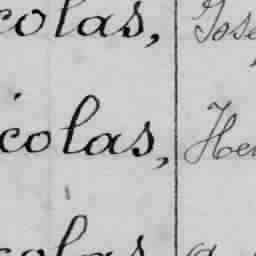 colas, Jose
icolas, Hen
colas